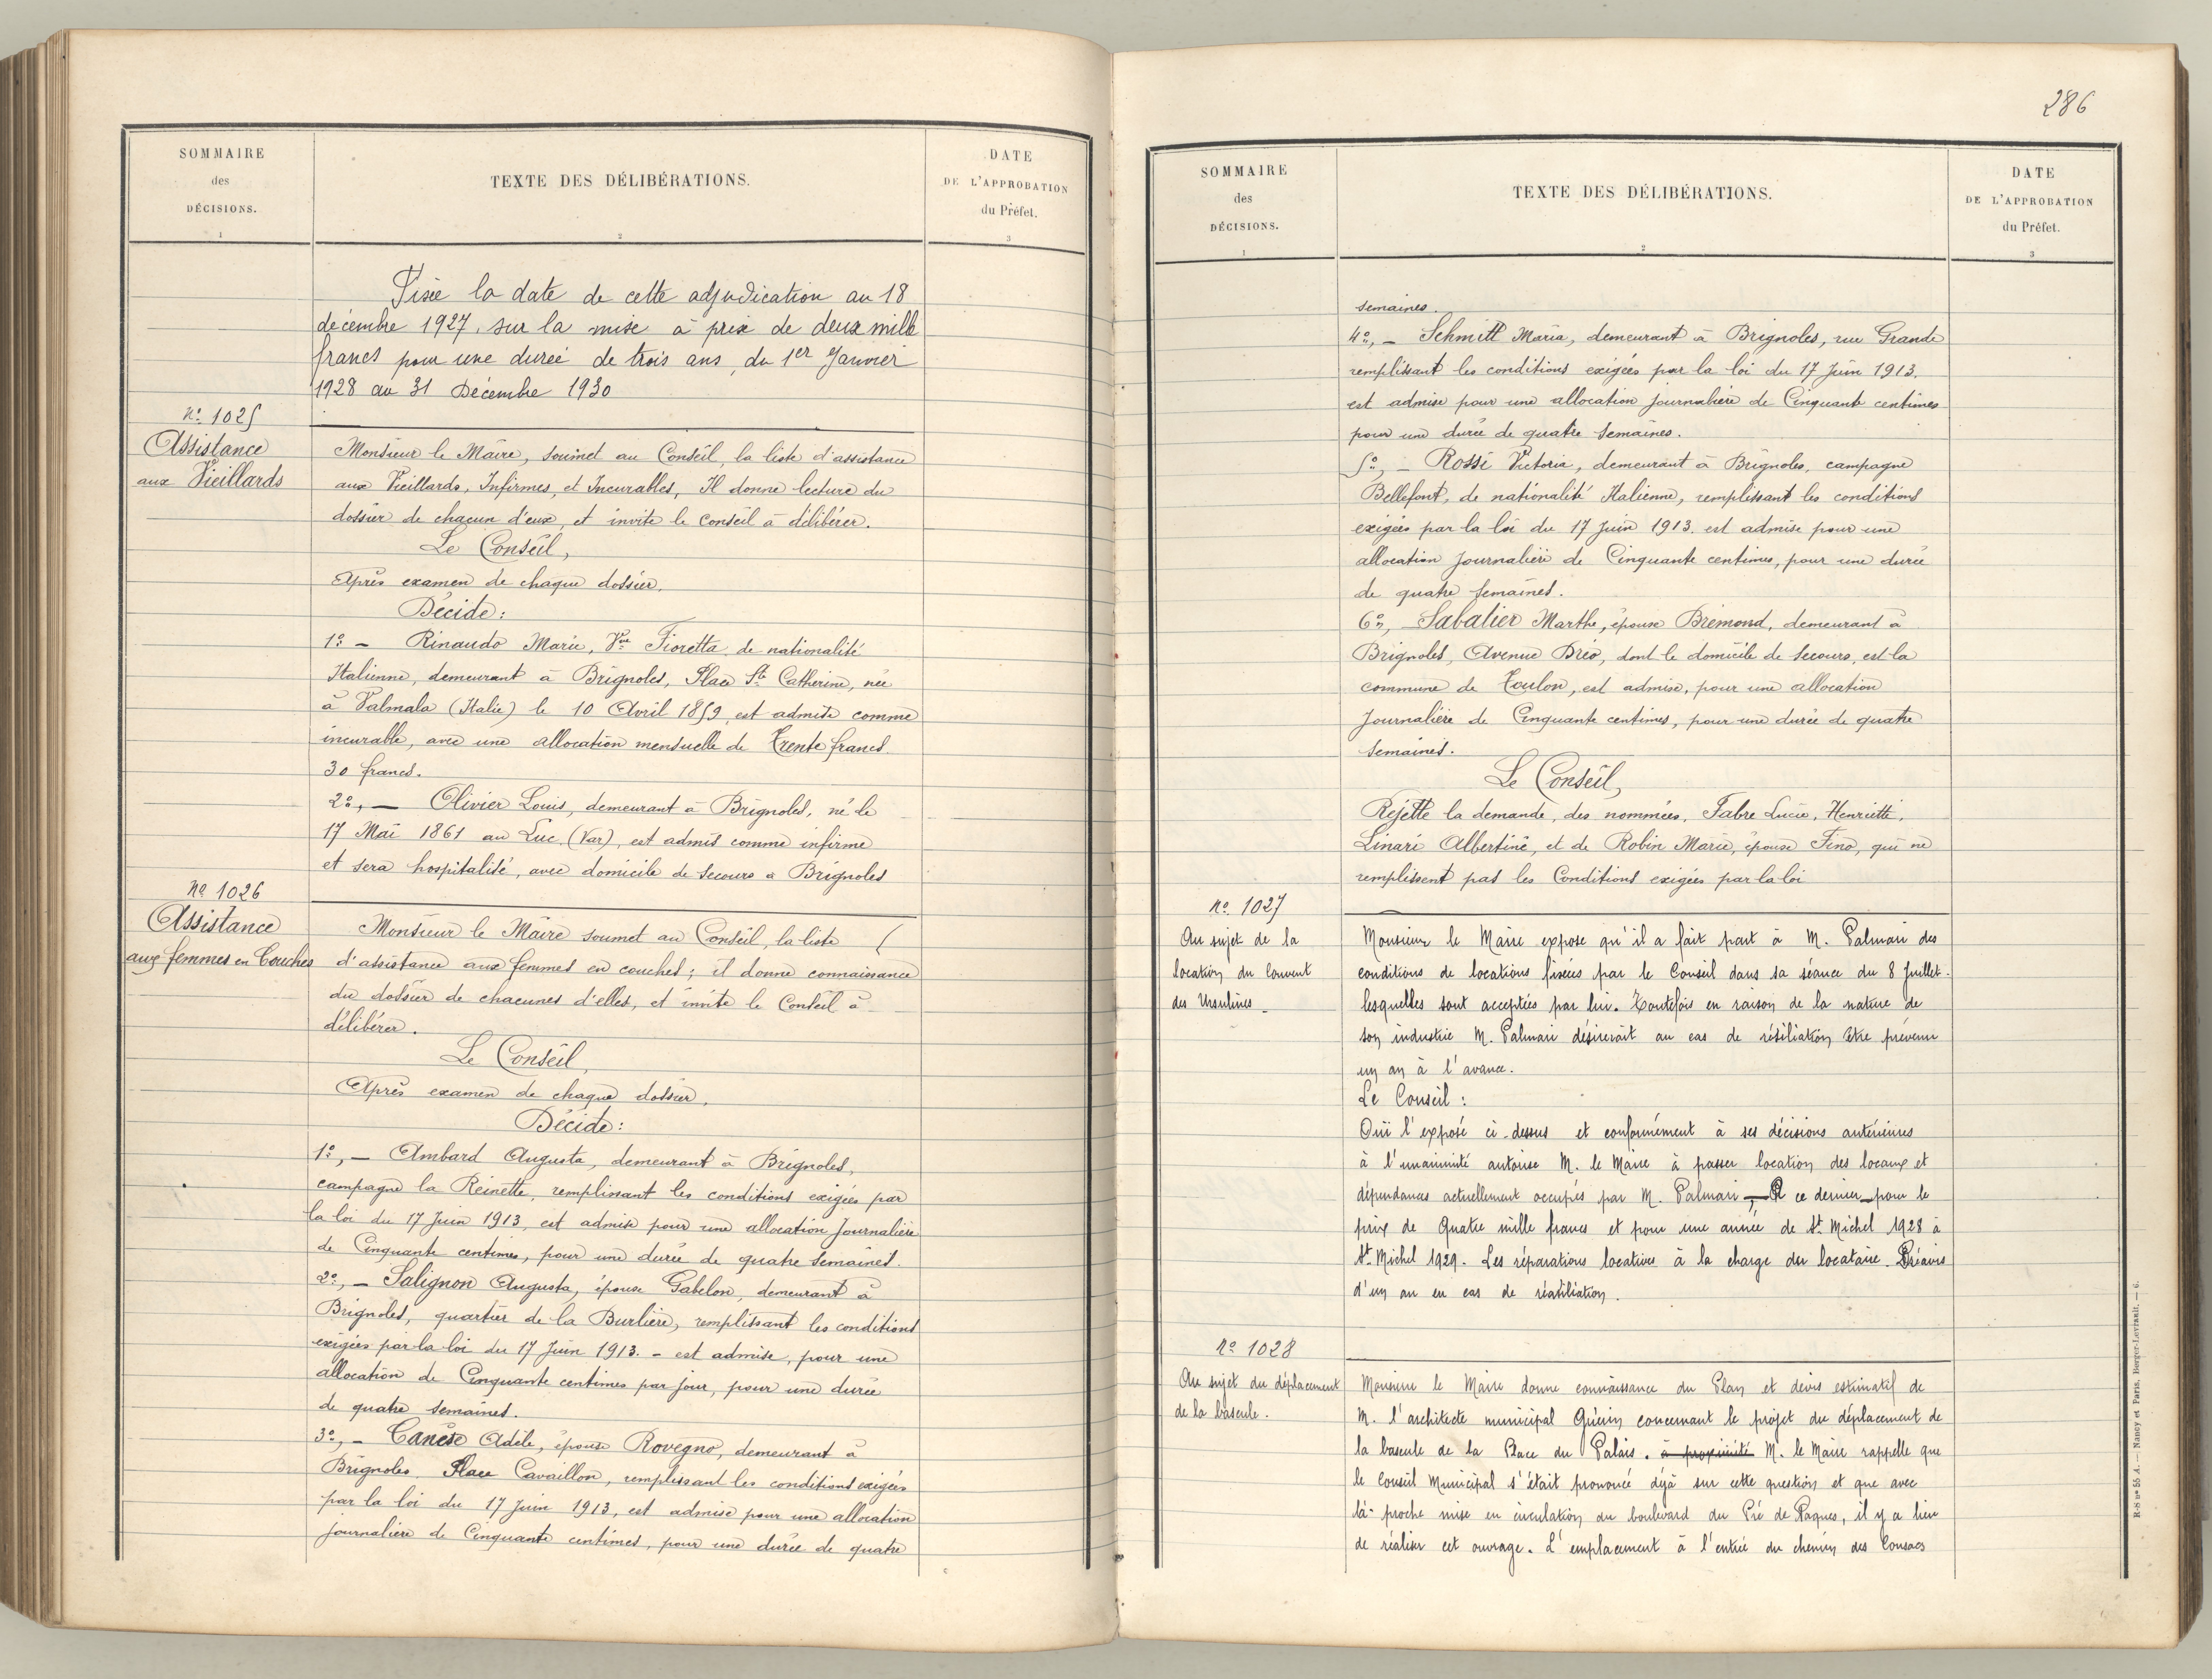 SOMMAIRE
des
DÉCISIONS.
1
TEXTE DES DÉLIBÉRATIONS.
2
DATE
DE L'APPROBATION
du Préfet.
3
Fixée la date de cette adjudication au 18
décembre 1927, sur la mise à prix de deux mille
francs pour une durée de trois ans, du 1er Janvier
1928 au 31 Décembre 1930
N° 1025
Assistance
aux Vieillards
Monsieur le Maire, soumet au Conseil, la liste d'assistance
aux Vieillards, Infirmes, et Incurables, Il donne lecture du
dossier de chacun d'eux, et invite le Conseil à délibérer.
Le Conseil,
Après examen de chaque dossier.
Décide:
1° - Rinaudo Marie, Vve Fioretta de nationalité
Italienne, demeurant à Brignoles, Place Ste Catherine, née
à Valmala (Italie) le 10 Avril 1859, est admise comme
incurable, avec une allocation mensuelle de Trente francs
30 francs.
2°, - Olivier Louis, demeurant à Brignoles, né le
17 Mai 1861 au Luc (Var), est admis comme infirme
et sera hospitalisé, avec domicile de secours à Brignoles
N° 1026
Assistance
aux femmes en Couches
Monsieur le Maire soumet au Conseil, la liste (
d'assistance aux femmes en couches; il donne connaissance
du dossier de chacunes d'elles, et invite le Conseil à
délibérer.
Le Conseil,
Après examen de chaque dossier,
Décide:
1°, - Ambard Augusta, demeurant à Brignoles,
campagne la Reinette, remplissant les conditions exigées par
la loi du 17 Juin 1913, est admise pour une allocation Journalière
de Cinquante centimes, pour une durée de quatre semaines.
2°, - Salignon Augusta, épouse Gabelon, demeurant à
Brignoles, quartier de la Burlière, remplissant les conditions
exigées par la loi du 17 Juin 1913. - est admise, pour une
allocation de Cinquante centimes par jour, pour une durée
de quatre semaines.
3°, - Canèse Adèle, épouse Rovegno, demeurant à
Brignoles Place Cavaillon, remplissant les conditions exigées
par la loi du 17 Juin 1913, est admise pour une allocation
journalière de Cinquante centimes, pour une durée de quatre
286
SOMMAIRE
des
DÉCISIONS.
1
TEXTE DES DÉLIBÉRATIONS.
2
DATE
DE L'APPROBATION
du Préfet.
3
semaines.
4°, - Schmitt Maria, demeurant à Brignoles, rue Grande
remplissant les conditions exigées par la loi du 17 Juin 1913.
est admise pour une allocation journalière de Cinquante centimes
pour une durée de quatre semaines.
5°, - Rossi Victoria, demeurant à Brignoles, campagne
Bellefont, de nationalité Italienne, remplissant les conditions
exigées par la loi du 17 Juin 1913. est admise pour une
allocation Journalière de Cinquante centimes, pour une durée
de quatre semaines.
6°, Sabalier Marthe, épouse Brémond, demeurant à
Brignoles, Avenue Dréo, dont le domicile de secours, est la
commune de Toulon, est admise, pour une allocation
Journalière de Cinquante centimes, pour une durée de quatre
Semaines.
Le Conseil,
Rejette la demande, des nommées, Fabre Lucie, Henriette,
Linari Albertine, et de Robin Marie, épouse Fino, qui ne
remplissent pas les Conditions exigées par la loi
N° 1027
Au sujet de la
location du Couvent
des Ursulines -
Monsieur le Maire expose qu'il a fait part à M. Palmari des
conditions de locations fixées par le Conseil dans sa séance du 8 Juillet.
lesquelles sont acceptées par lui. Toutefois en raison de la nature de
son industrie M. Palmari désirerait au cas de résiliation être prévenu
un an à l'avance.
Le Conseil :
Ouï l'exposé ci-dessus et conformément à ses décisions antérieures
à l'unanimité autorise M. le Maire à passer location des locaux et
dépendances actuellement occupés par M. Palmari, - à ce dernier - pour le
prix de Quatre mille francs et pour une année de St Michel 1928 à
St Michel 1929. Les réparations locatives à la charge du locataire. Préavis
d'un an en cas de résiliation.
N° 1028
Au sujet du déplacement
de la bascule.
Monsieur le Maire donne connaissance du Plan et devis estimatif de
M. l'architecte municipal Guérin concernant le projet du déplacement de
la bascule de la Place du Palais. à proximité M. le Maire rappelle que
le Conseil Municipal s'était prononcé déjà sur cette question et que avec
la proche mise en circulation du boulevard du Pré de Paques, il y a lieu
de réaliser cet ouvrage. L'emplacement à l'entrée du chemin des Consacs
R-S n° 55 A. — Nancy et Paris, Berger-Levrault. — 6.